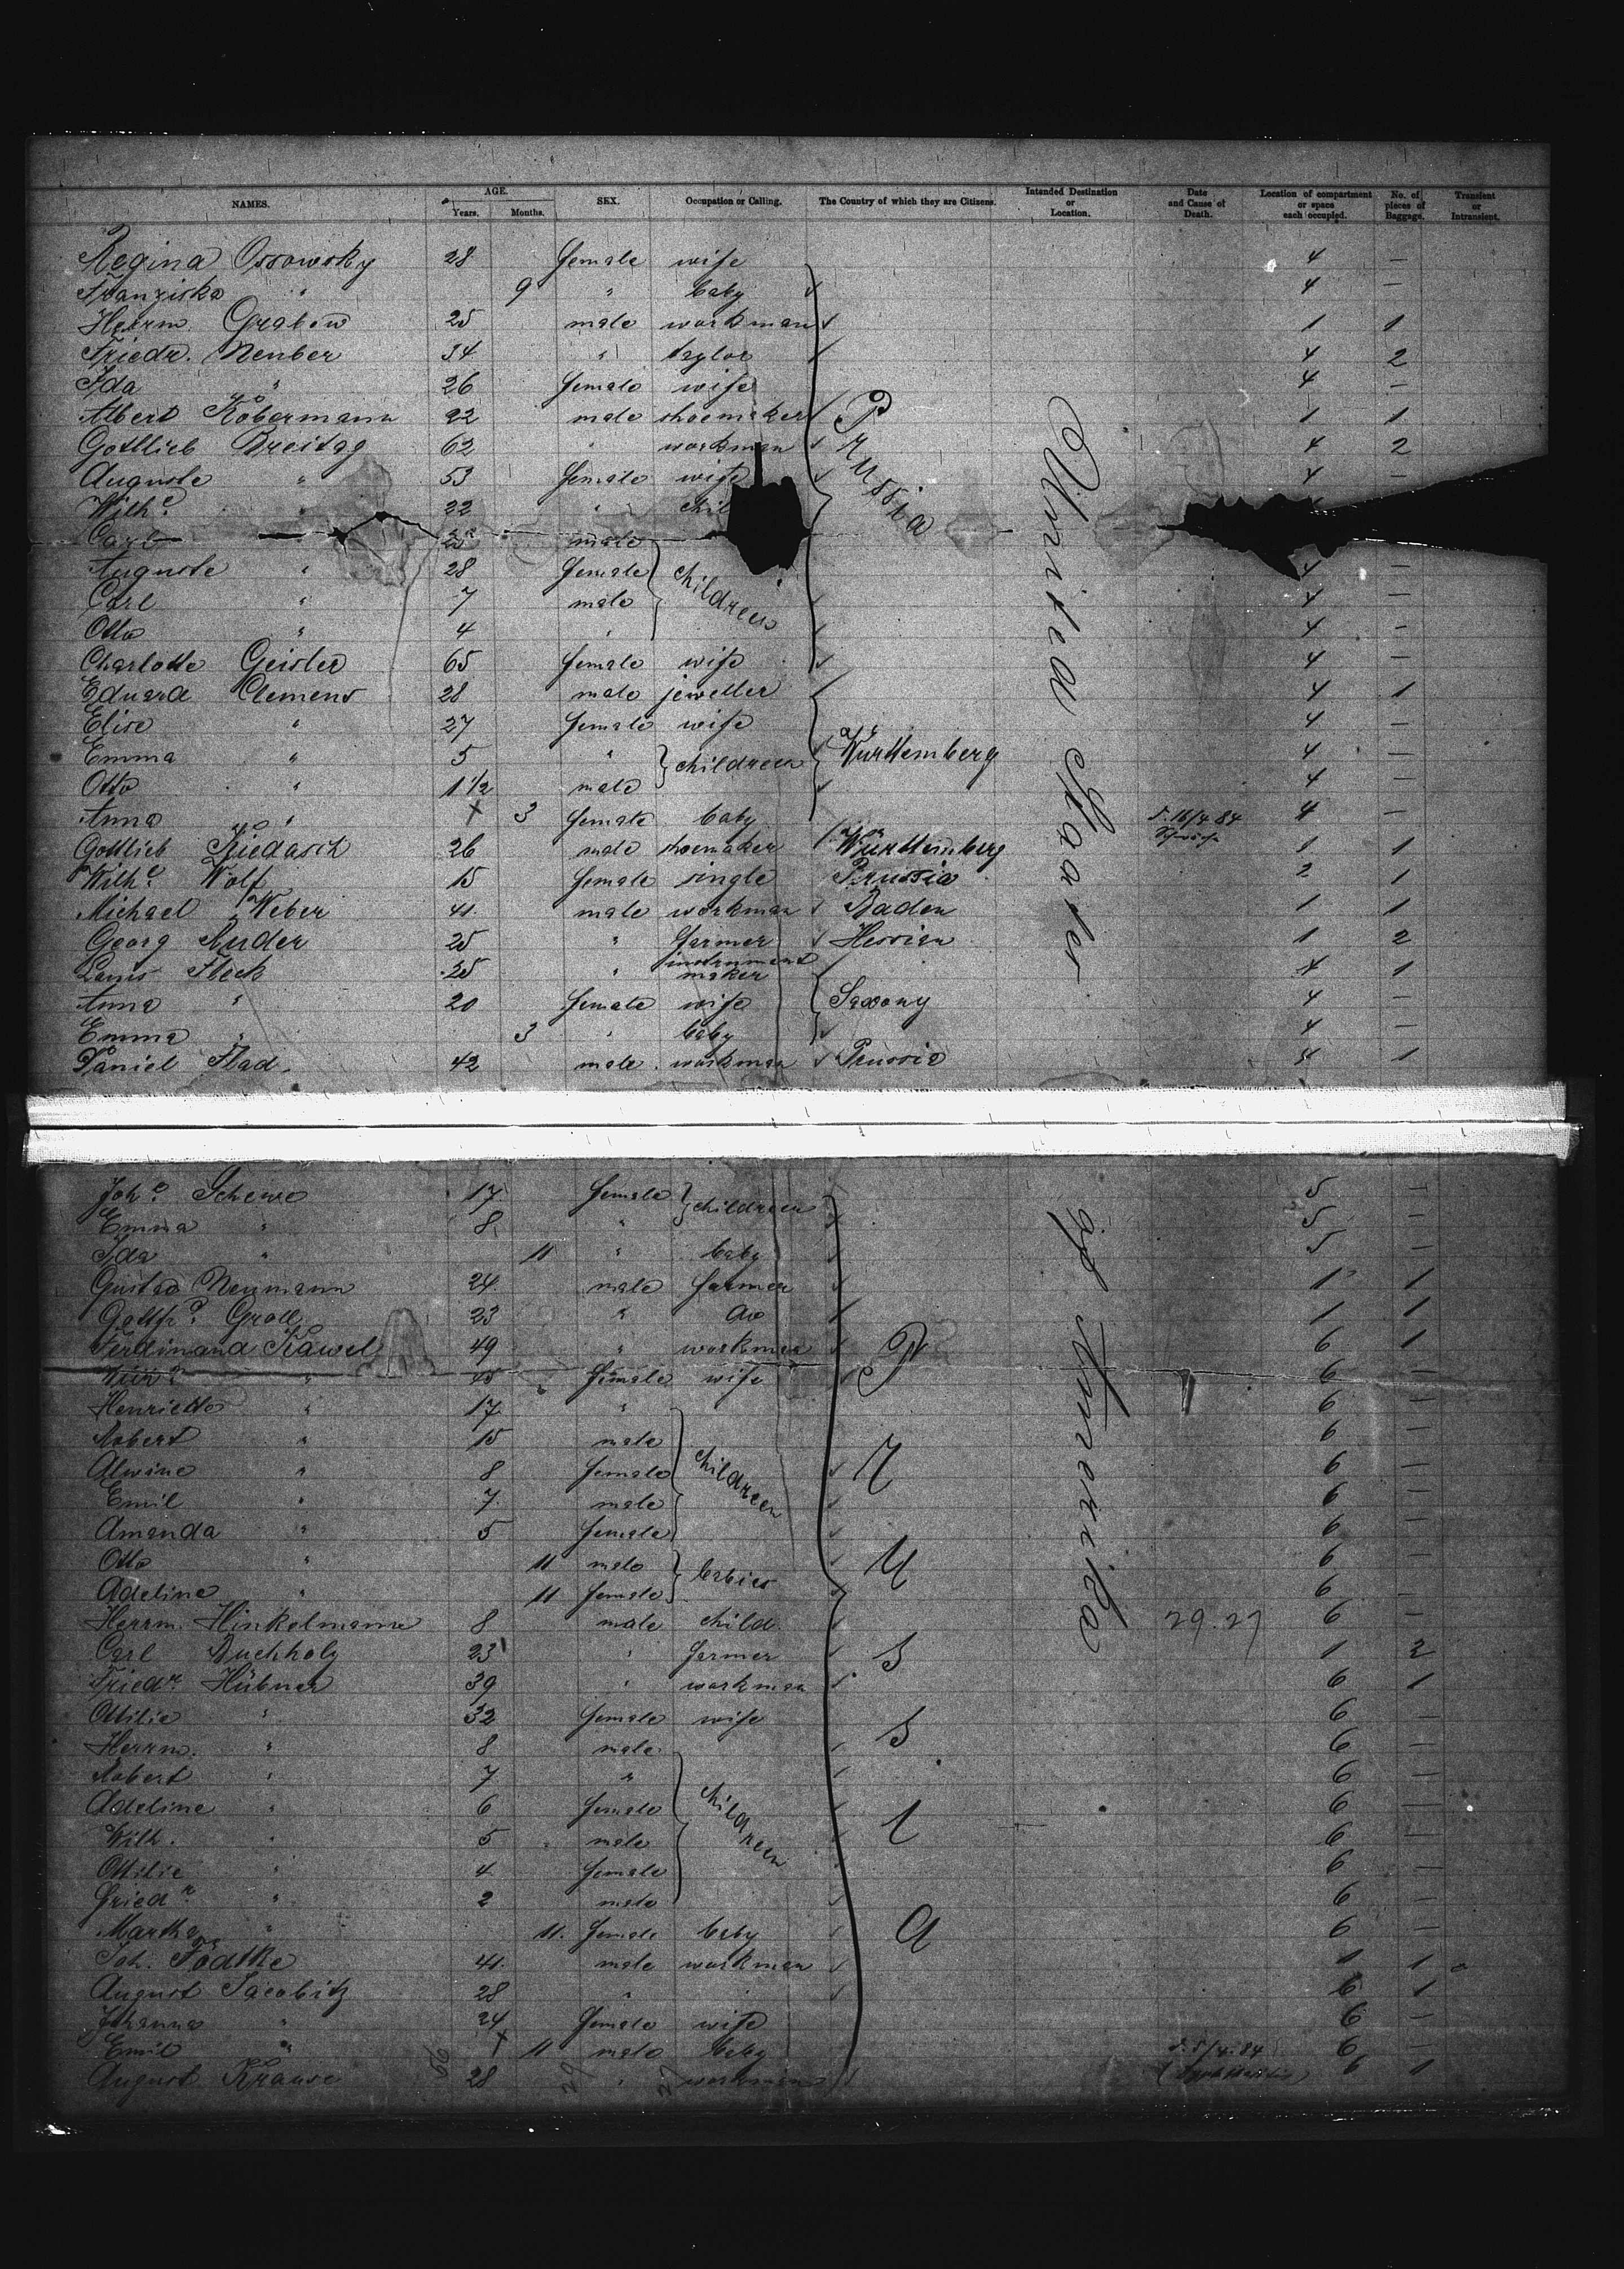 NAMES. AGE. Years. Months. SEX. Occupation or Calling. The Country of which they are Citizens. Intended Destination or Location. Date and Cause of Death. Location of compartment or space each occupied. No. of pieces of Baggage. Transient or Intransient.
Regina Ossowsky 28 female wife 4 —
Franziska " 9 " baby 4 —
Herrm. Grabow 25 male workman 1 1
Friedr. Neuber 34 " taylor 4 2
Ida " 26 female wife 4 —
Albert Kobermann 22 male shoemaker Prussia 1 1
Gottlieb Breitag 62 " workman 4 2
Auguste " 53 female wife 4 —
Wilh.e " 22 " chil
Carl 25 male
Auguste " 28 female children 4 —
Carl " 7 male 4 —
Otto " 4 " 4 —
Charlotte Geisler 65 female wife 4 —
Eduard Clemens 28 male jeweller 4 1
Elise " 27 female wife 4 —
Emma " 5 " children Württemberg 4 —
Otto " 1 1/2 male 4 —
Anna " 3 female baby 16/4 84 4 —
Gottlieb 26 male shoemaker Württemberg 1 1
Wilh.e Wolf 15 female single Prussia 2 1
Michael Weber 41 male workman Baden 1 1
Georg 25 " farmer Hessian 1 2
Louis Fleck 25 " instrument maker 4 1
Anna " 20 female wife Saxony 4 —
Emma " 3 " baby 4 —
Daniel Flad. 42 male workman Prussia 4 1
United States
Joh.e Schewe 17 female children 5 —
Emma " 8 " 5 —
Ida " 11 " baby 5 —
Gustav Neumann 24 male farmer 1 1
Gottfr.d Groll 23 " do 1 1
Ferdinand Kawel 49 " workman 6 1
45 female wife 6 —
Henriette " 17 " 6 —
Robert " 15 male 6 —
Alwine " 8 female children 6 —
Emil " 7 male 6 —
Amanda " 5 female 6 —
Otto " 11 male babies 6 —
Adeline " 11 female 6 —
Herrm. Hinkelmann 8 male child 29.27 6 —
Carl Buchholz 23 " farmer 1 2
Friedr. Hübner 39 " workman 6 1
Ottilie " 32 female wife 6 —
Herrm. " 8 male 6 —
Robert " 7 " 6 —
Adeline " 6 female children 6 —
Wilh. " 5 male 6 —
Ottilie " 4 female 6 —
Friedr. " 2 male 6 —
Martha " 11 female baby 6 —
Joh. Födtke 41 male workman 1 1
August Jacobitz 28 " 6 1
Johanna " 24 female wife 6 —
Emil " 11 male baby 5/4.84 6 —
August Krause 28 " workman 6 1
Prussia
of Amerika